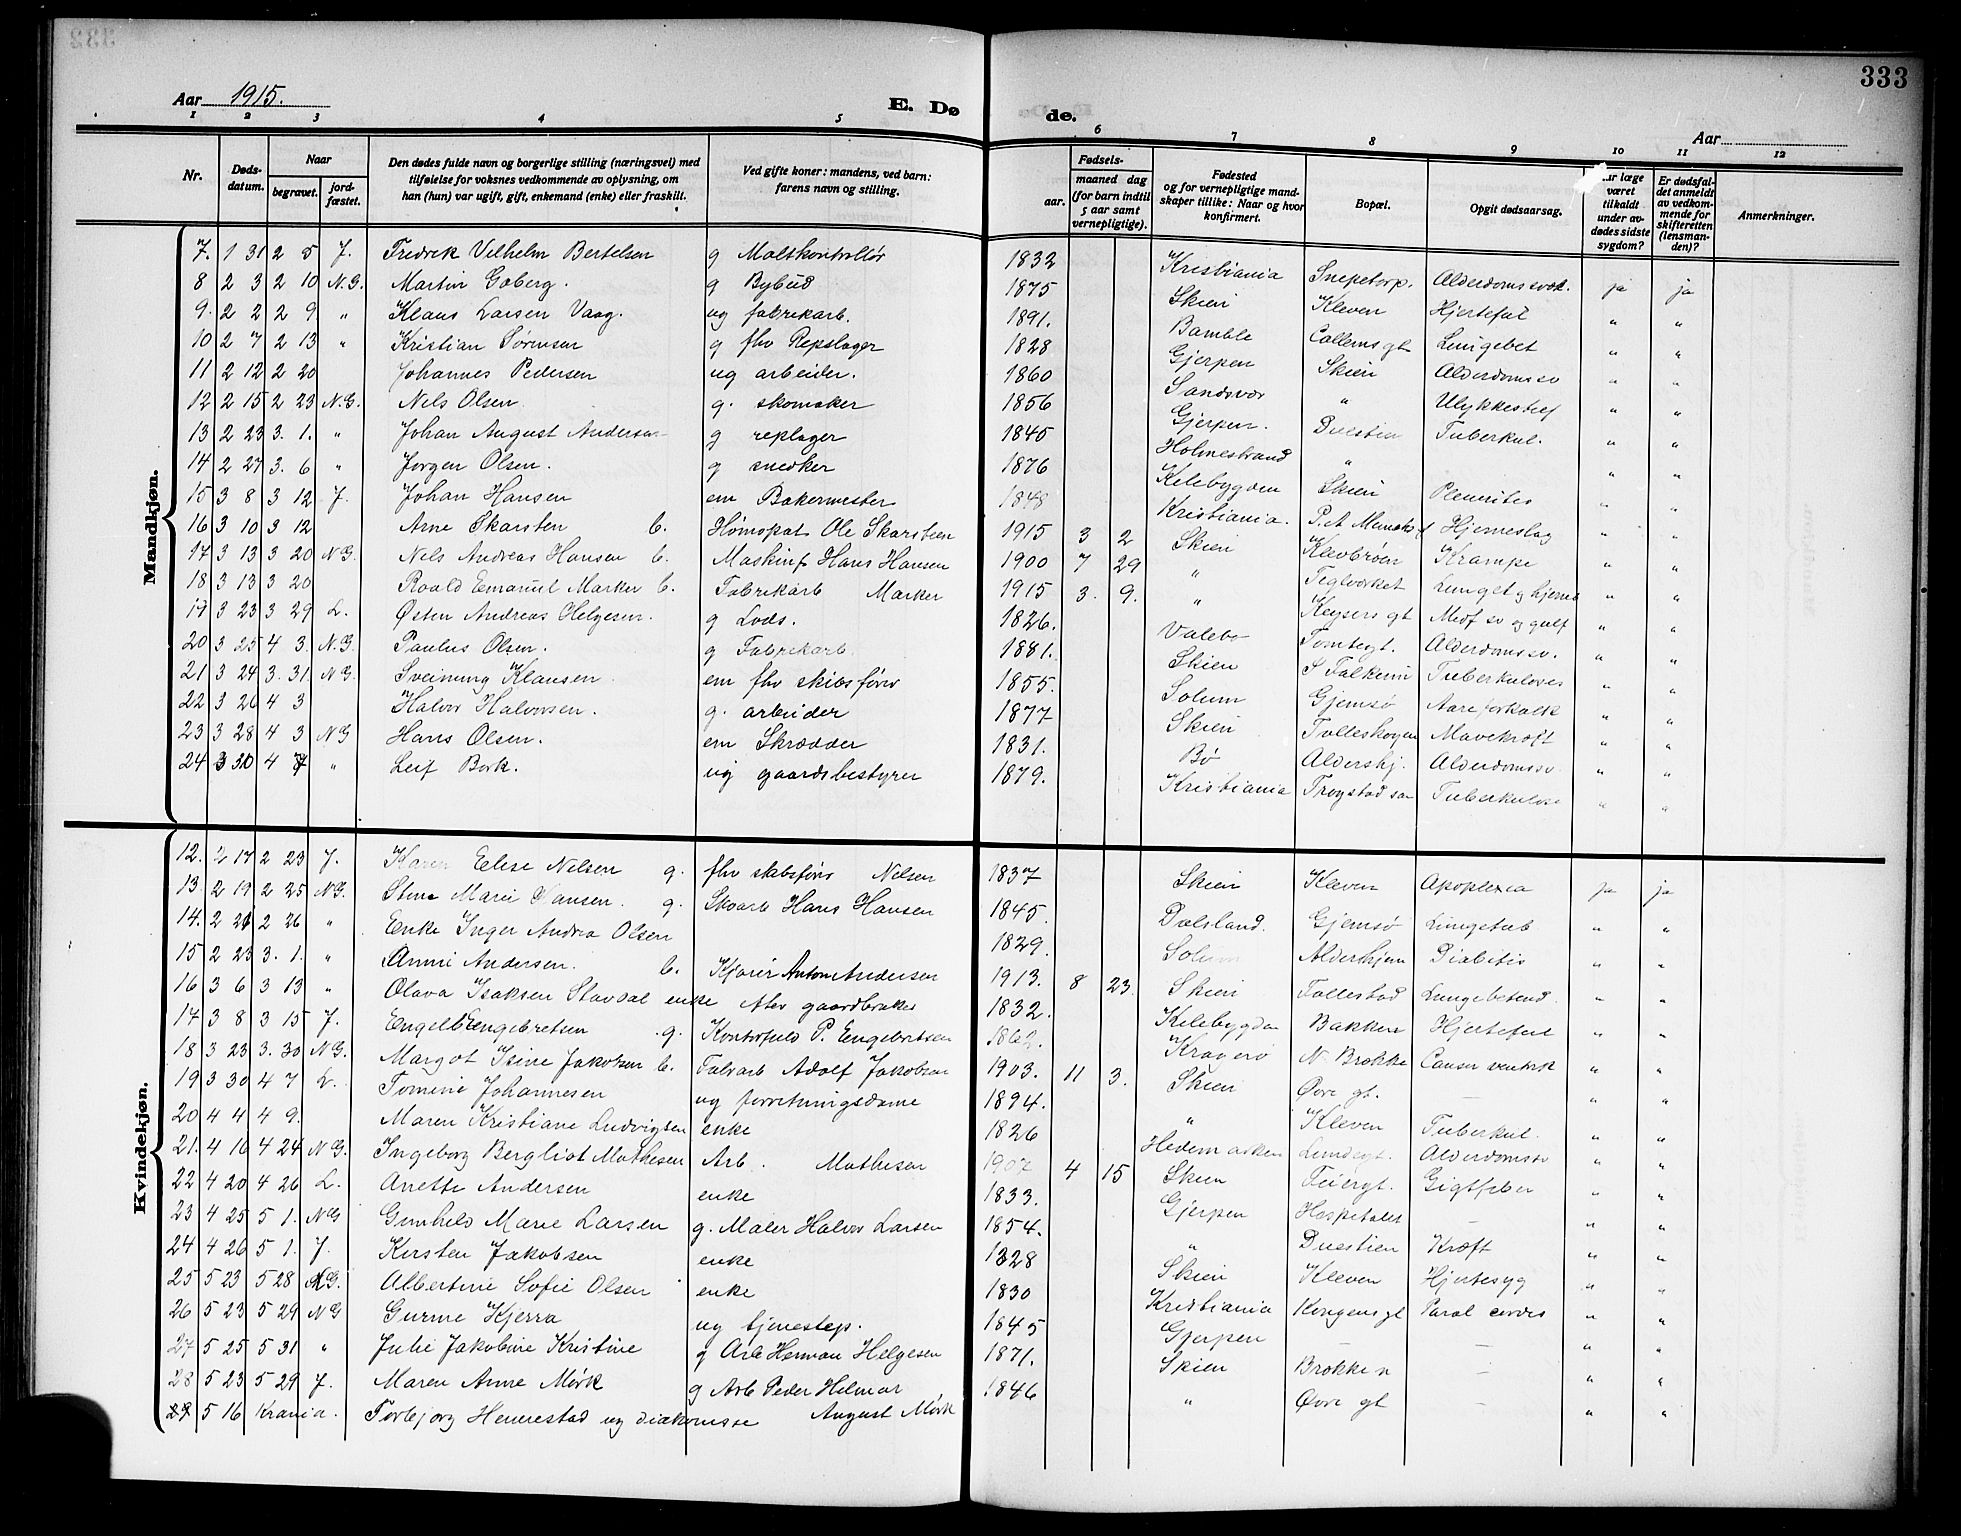 333
Aar 1915.
E. Døde.
Aar
1 2 3 4 5 6 7 8 9 10 11 12
Nr.
Dødsdatum.
Naar
begravet.
jordfæstet.
Den dødes fulde navn og borgerlige stilling (næringsvei) med tilføielse for voksnes vedkommende av oplysning, om han (hun) var ugift, gift, enkemand (enke) eller fraskilt.
Ved gifte koner: mandens, ved barn: farens navn og stilling.
Fødsels-
aar.
maaned dag
(for barn indtil 5 aar samt vernepligtige).
Fødested
og for vernepligtige mandskaper tillike: Naar og hvor konfirmert.
Bopæl.
Opgit dødsaarsag.
læge været tilkaldt under avdødes sidste sygdom?
Er dødsfaldet anmeldt av vedkommende for skifteretten (lensmanden)?
Anmerkninger.
Mandkjøn.
7. 1 31 2 5 J. Fredrik Vilhelm Bertelsen g Maltkontrollør 1832 Kristiania Snipetorp. Alderdomssvak. ja ja
8 2 3 2 10 N.G. Martin Goberg. g Bybud 1875 Skien Kleven Hjertefeil " "
9. 2 2 2 9 " Klaus Larsen Vaag. ug fabrikarb. 1891. Bamble Collettsgt Lungebet " "
10 2 7 2 13 " Kristian Sørensen g fhv Repslager 1828 Gjerpen Skien Alderdomssv " "
11 2 12 2 20 Johannes Pedersen ug arbeider. 1860 Sandsvær " Ulykkestilf " "
12 2 15 2 23 N.G. Nils Olsen g. skomaker 1856 Gjerpen. Duestien Tuberkul. " "
13 2 23 3. 1. " Johan August Andersen g repslager 1845 Holmestrand " " "
14 2 27 3. 6 " Jørgen Olsen. g snedker 1876 Kilebygden Skien Pleurites " "
15 3 8 3 12 J. Johan Hansen em Bakermester 1848 Kristiania. P.A Munchs gt Hjerneslag " "
16 3 10 3 12 Arne Skarsten b. Hømopat Ole Skarsteen 1915 3 2 Skien Klevbrøen Krampe " "
17 3 13 3 20 N G. Nils Andreas Hansen b. Maskinf Hans Hansen 1900 7 29 " Teglverket Lunget og hjerneb " "
18 3 13 3 20 Roald Emanuel Marker b. Fabrikarb Marker 1915 3. 9. " Keysers gt Medf sv og gulf " "
19 3 23 3 29 L. Østen Andreas Helgesen. g Lods. 1826. Valebø Tomtegt. Alderdomssv. " "
20 3 25 4 3. N.G. Paulus Olsen. g Fabrikarb 1881. Skien S Falkum Tuberkuloses " "
21 3 24 3. 31. N G. Sveinung Klausen. em fhv skibsfører 1855. Solum Gjemsø Aareforkalk " "
22 3 26 4 3 Halvor Halvorsen. g. arbeider 1877 Skien Tolleskogen Mavekræft " "
23 3 28 4 3 N G Hans Olsen. em Skrædder 1831. Bø Aldershj. Alderdomssv. " "
24 3 30 4 7 " Leif Bork. ug gaardsbestyrer 1879. Kristiania Trogstad san Tuberkulose " "
Kvindekjøn.
12. 2 17 2 23 J. Karen Elise Nilsen g. fhv skibsfører Nilsen 1837 Skien Kleven Apoplexia ja ja
13 2 19 2 25 N G. Stina Marie Hansen. g. Skoarb Hans Hansen 1845. Dalsland. Gjemsø Lungetub " "
14. 2 21 2 26 " Enke Inger Andrea Olsen 1829. Solum Alderhjem Diabitis " "
15 2 23 3. 1. " Anni Andersen. b. Kjører Anton Andersen 1913. 8 23. Skien Follestad Lungebetend. " "
16 3 6 3 13 " Olava Isaksen Stavdal enke efter gaardbruker 1832. Kilebygden Bakken Hjertefeil " "
17 3 8 3 15 J. Engelb Engebretsen g. Kontorfuld P. Engebretsen 1862. Kragerø N. Brække Cancer ventrik " "
18 3 23 3. 30 N G. Margot Isine Jakobsen b. Falvarb Adolf Jakobsen 1903. 11 3. Skien Øvre gt. — " "
19 3 30 4 7 L. Tomine Johannesen ug forretningsdame 1894. " Kleven Tuberkul. " "
20 4 4 4 9. Maren Kristiane Ludvigsen enke 1826 Hedemarken Lundegt. Alderdomssv " "
21. 4 16 4 24 N G. Ingeborg Bergliot Mathesen Arb. Mathesen 1907 4 15 Skien Feiergt. Gigtfeber " "
22 4 20 4 26 L. Anette Andersen enke 1833. Gjerpen Hospitalet — " "
23 4 25 5 1. N G Gunhild Marie Larsen g. Maler Halvor Larsen 1854. " Duestien Kræft " "
24 4 26 5 1. J. Kirsten Jakobsen enke 1828 Skien Kleven Hjertesyg " "
25 5 23 5 28 N G. Albertine Sofie Olsen enke 1830 Kristiania Kongensgt Paral cordis " "
26 5 23 5 29 N G Gurine Kjerra ug tjenestep. 1845 Gjerpen — " "
27 5 25 5 31 " Julie Jakobine Kristine g Arb Herman Helgesen 1871. Skien Brække n — " "
28 5 23 5 29 J. Maren Anne Mørk g Arb Peder Helmar August Mørk 1846 " Øvre gt — " "
29 5 16 Krania. Torbjorg Hennestad ug diakonisse